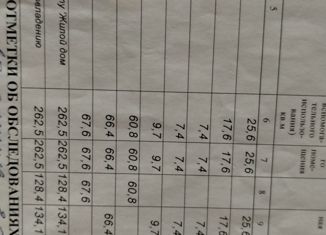 вспомога-
тельного
использо-
вания)
кв.м
го
поме-
щения
ния
5 6 7 8 9
25,6 25,6 25,6
17,6 17,6 17,6
7,4 7,4 7,4
7,4 7,4 7,4
9,7 9,7 9,7
60,8 60,8 60,8
66,4 66,4 66,4
67,6 67,6 67,6
"Жилой дом 262,5 262,5 128,4 134,1
овладению 262,5 262,5 128,4 134,1
ОТМЕТКИ ОБ ОБСЛЕДОВАНИЯХ